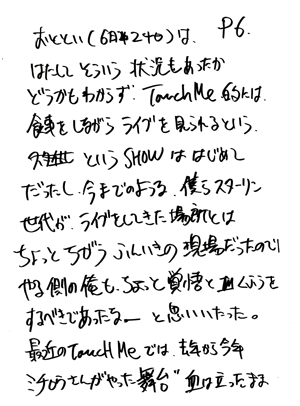 P6.
おととい(6月24日)は、
はたして そういう 状況もあったか
どうかもわからず. TouchMe 的には.
食事をしながら ライブを見られるという.
という SHOW は はじめて
だったし.今までのような. 僕らスターリン
世代が.ライブをしてきた場所とは
ちょっとちがう ふんいきの 現場だったので
やる側の俺も.ちょっと覚悟と くふうを
すべきであったなー と思いいたった。
最近のTouchMeでは.去年から今年
ミチロウさんがやった舞台" 立ったまま